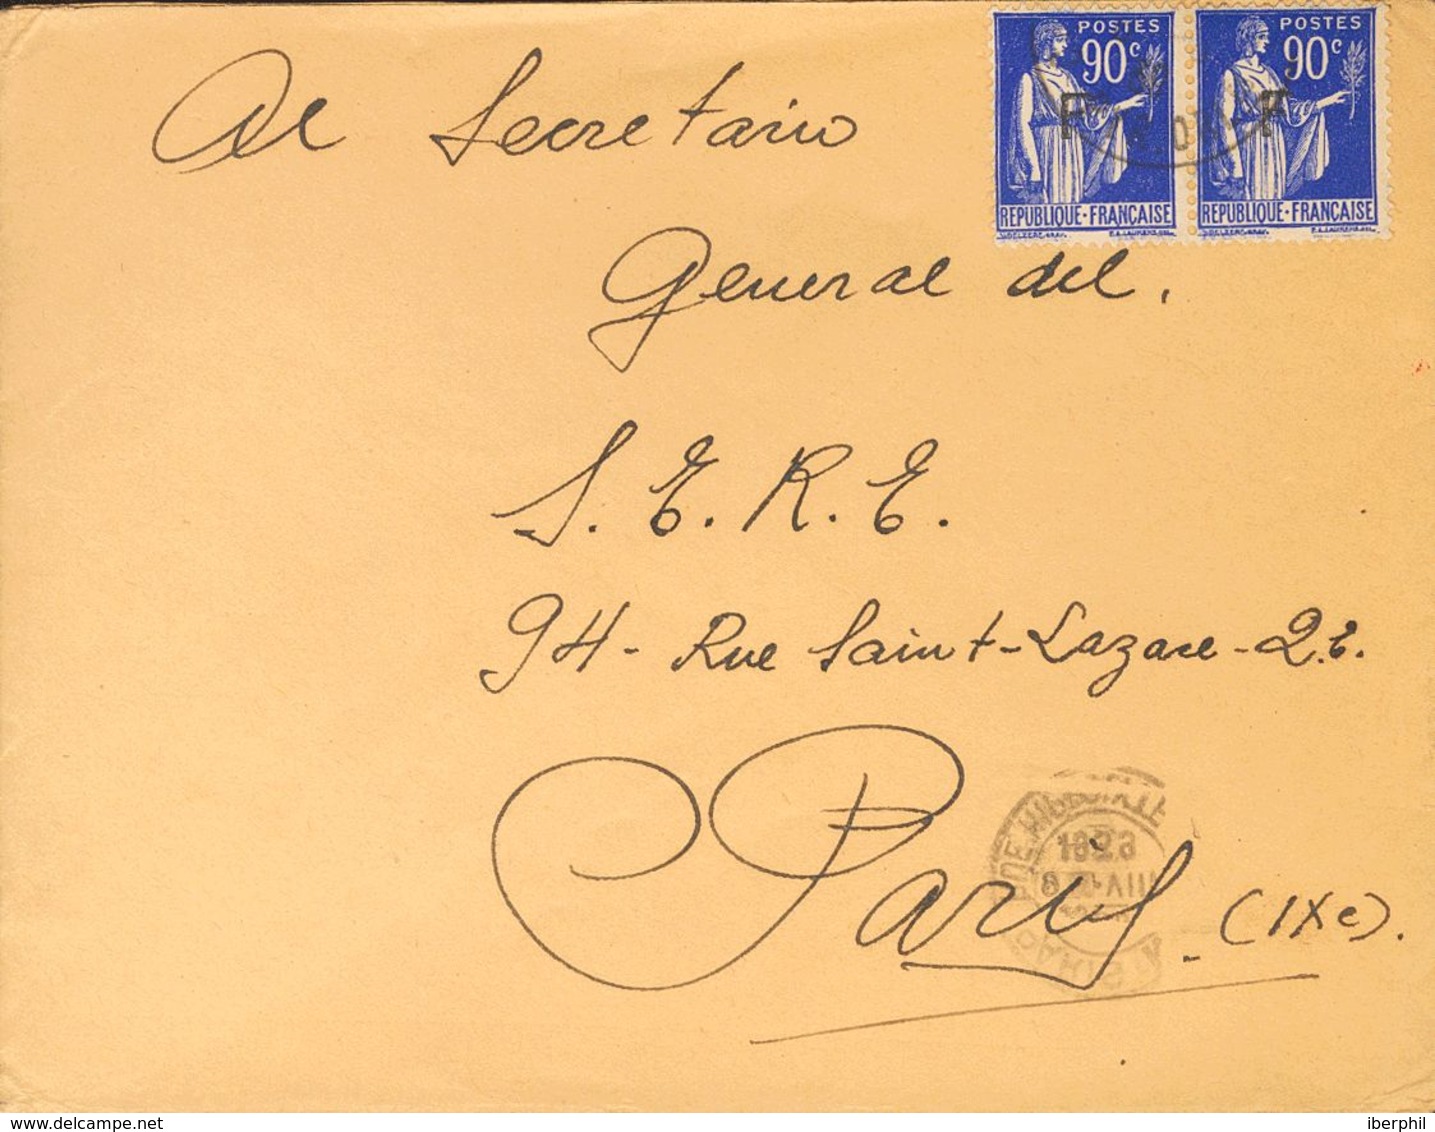 POSTES POSTES
90c 90c
F F
REPUBLIQUE·FRANÇAISE REPUBLIQUE·FRANÇAISE
Al Secretario
General del
S. E. R. E.
94 - Rue Saint-Lazare - 2.E.
Paris - (IXe).
VIII
delcampe.net
iberphil